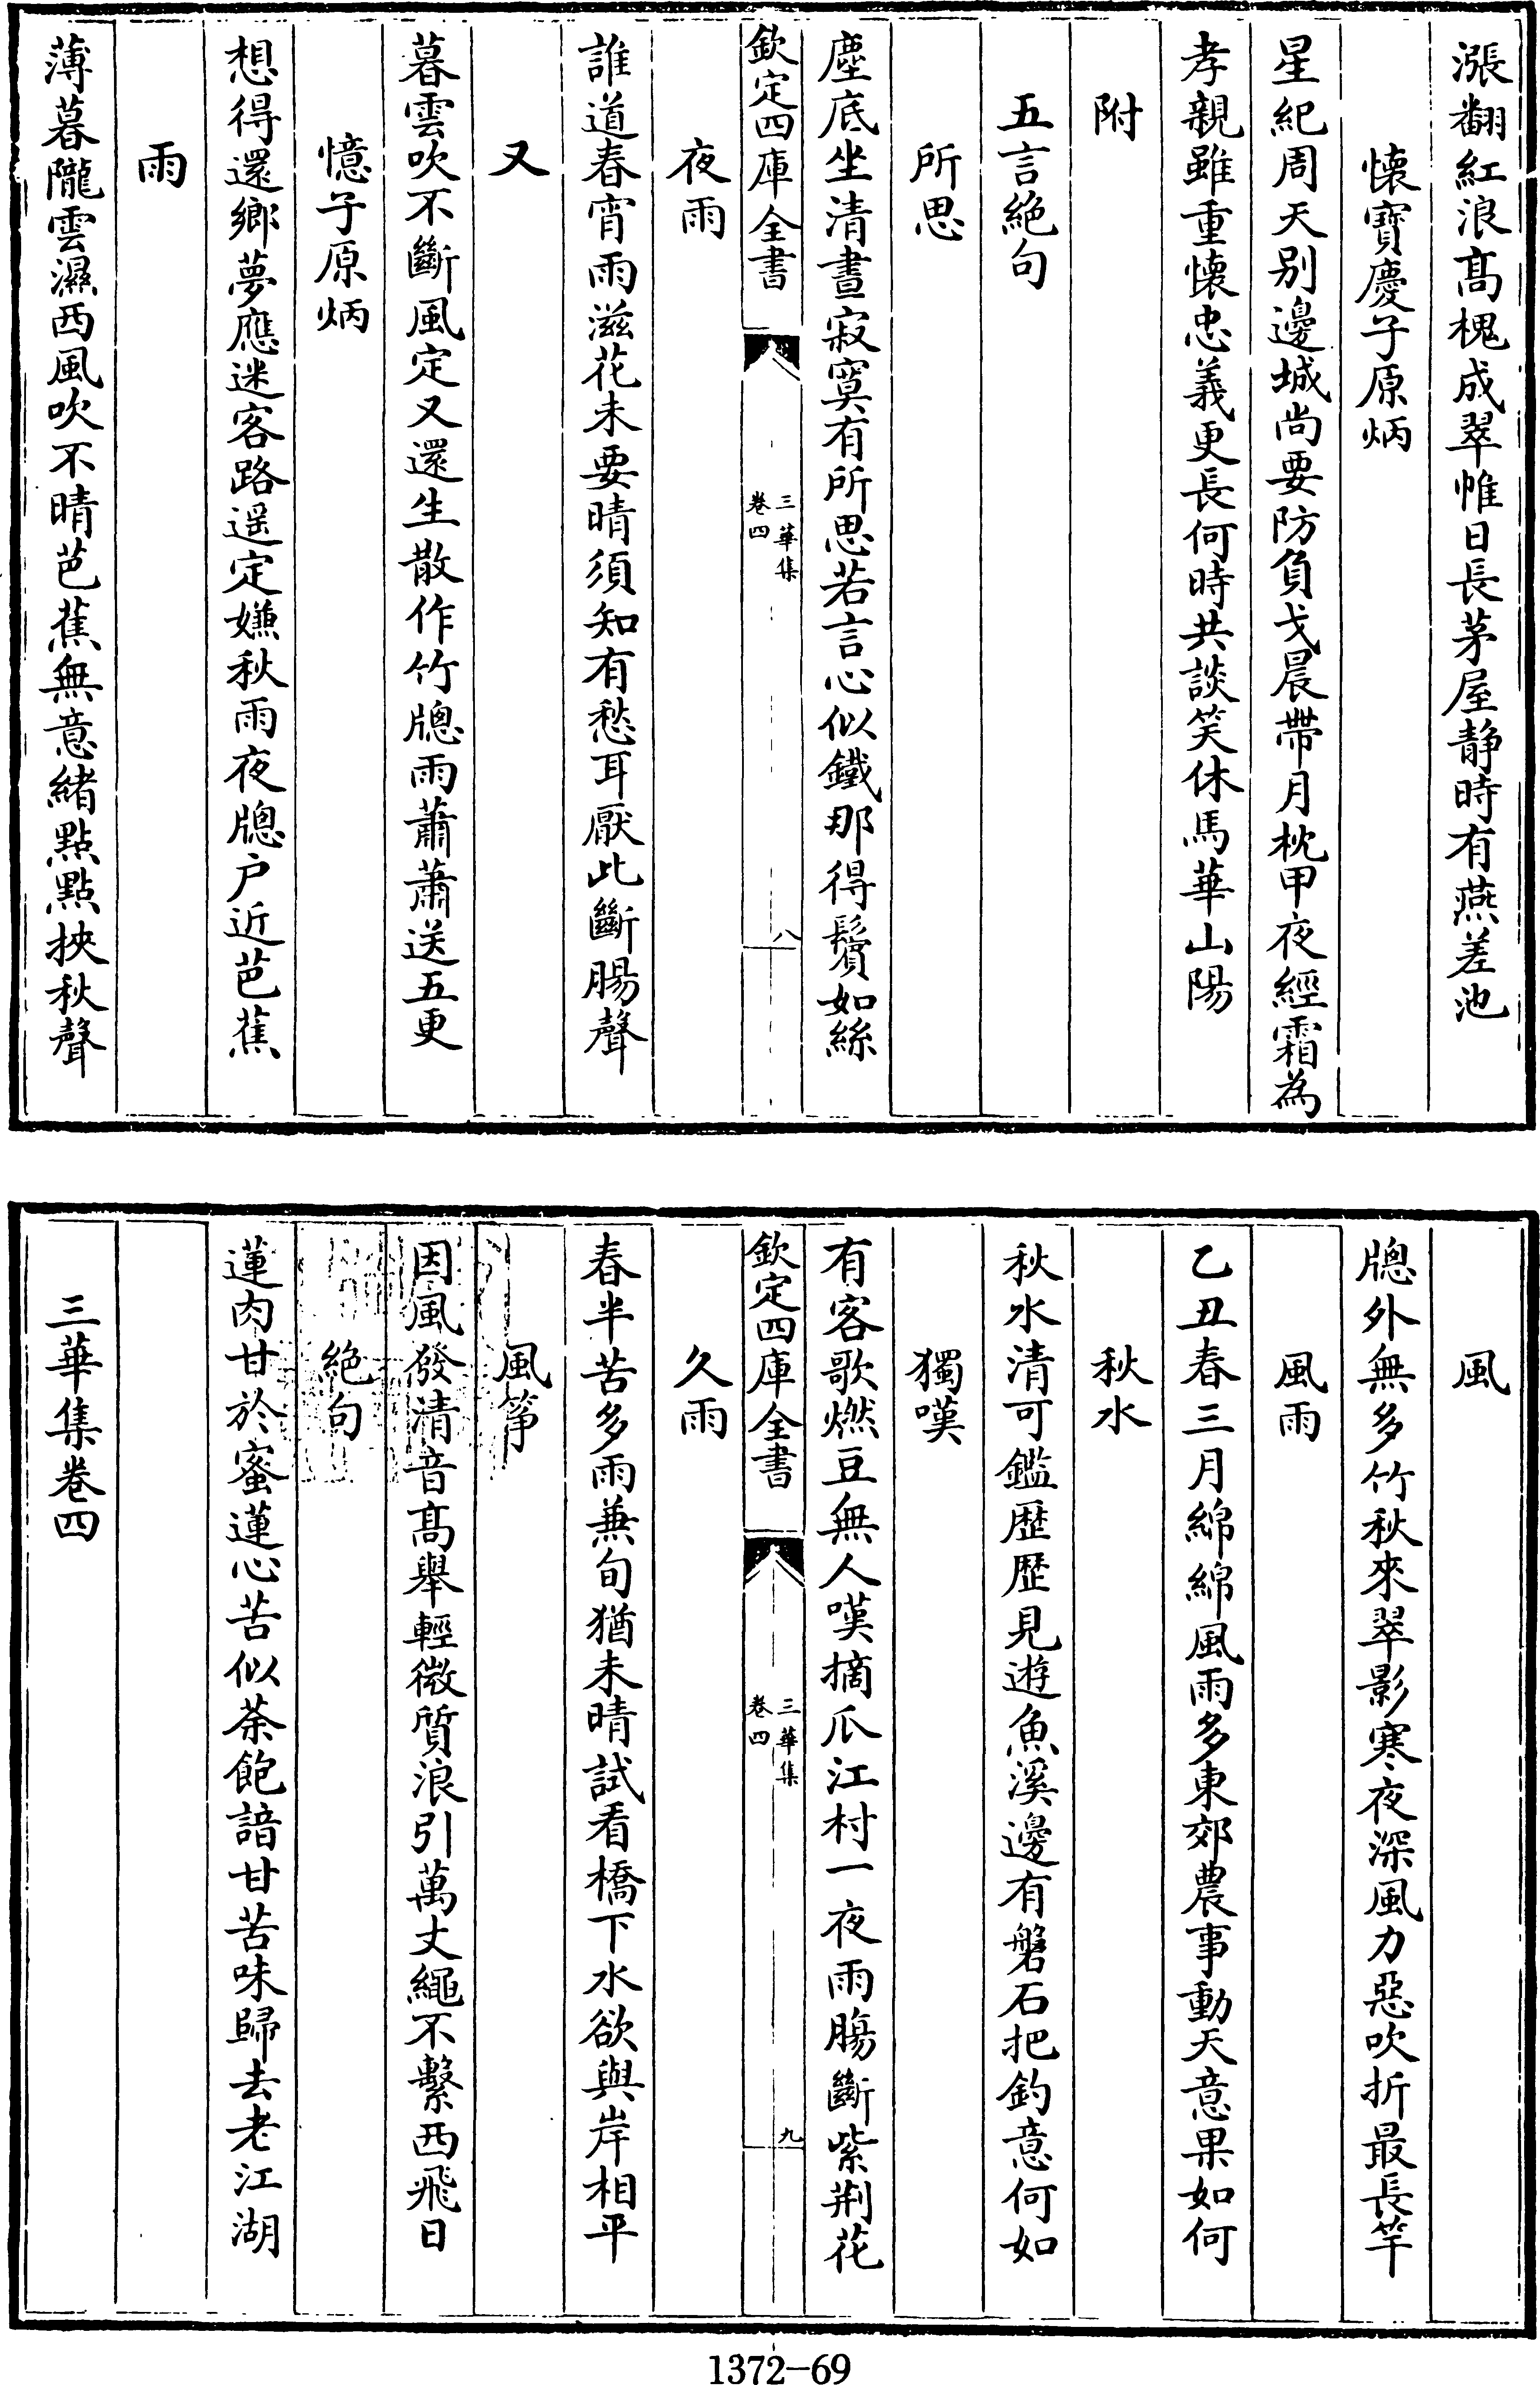 漲翻紅浪髙槐成翠帷日長茅屋靜時有燕差池
懐寶慶子原炳
星紀周天别邊城尚要防負戈晨帶月枕甲夜經霜為
孝親雖重懐忠義更長何時共談笑休馬華山陽
附
五言絶句
所思
塵底坐清晝寂寞有所思若言心似鐵那得鬢如絲
欽定四庫全書
三華集
卷四
八
夜雨
誰道春宵雨滋花未要晴須知有愁耳厭此斷腸聲
又
暮雲吹不斷風定又還生散作竹牕雨蕭蕭送五更
憶子原炳
想得還鄉夢應迷客路遥定嫌秋雨夜牕户近芭蕉
雨
薄暮隴雲濕西風吹不晴芭蕉無意緒點點挾秋聲
風
牕外無多竹秋來翠影寒夜深風力惡吹折最長竿
風雨
乙丑春三月綿綿風雨多東郊農事動天意果如何
秋水
秋水清可鑑歴歴見遊魚溪邊有磐石把釣意何如
獨嘆
有客歌燃豆無人嘆摘瓜江村一夜雨腸斷紫荆花
欽定四庫全書
三華集
卷四
九
久雨
春半苦多雨兼旬猶未晴試看橋下水欲與岸相平
風筝
因風發清音髙舉輕微質浪引萬丈繩不繫西飛日
絶句
蓮肉甘於蜜蓮心苦似荼飽諳甘苦味歸去老江湖
三華集卷四
1372-69